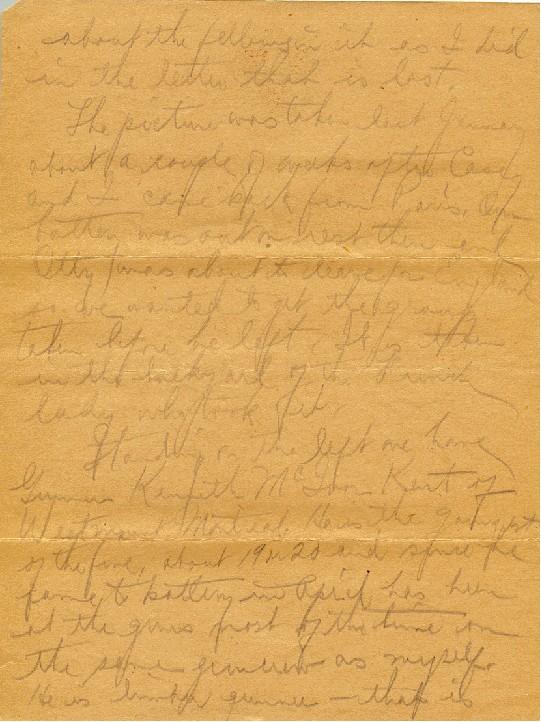 about the fellows in it as I did
in the letter that is lost.
The picture was taken last
about a couple of weeks after Casey
and I came back from Paris. Our
battery was out on rest then and
was about to leave for England
so we wanted to get the group
taken before he left. It is taken
in the backyard of the French
lady who took it.
Standing on the left we have
Gunner Kenneth Kent of
Westmount Montreal. He is the youngest
of the five, about 19 or 20 and since he
came to battery in April has been
at the guns most of the time on
the same guncrew as myself.
He is gunner - that is